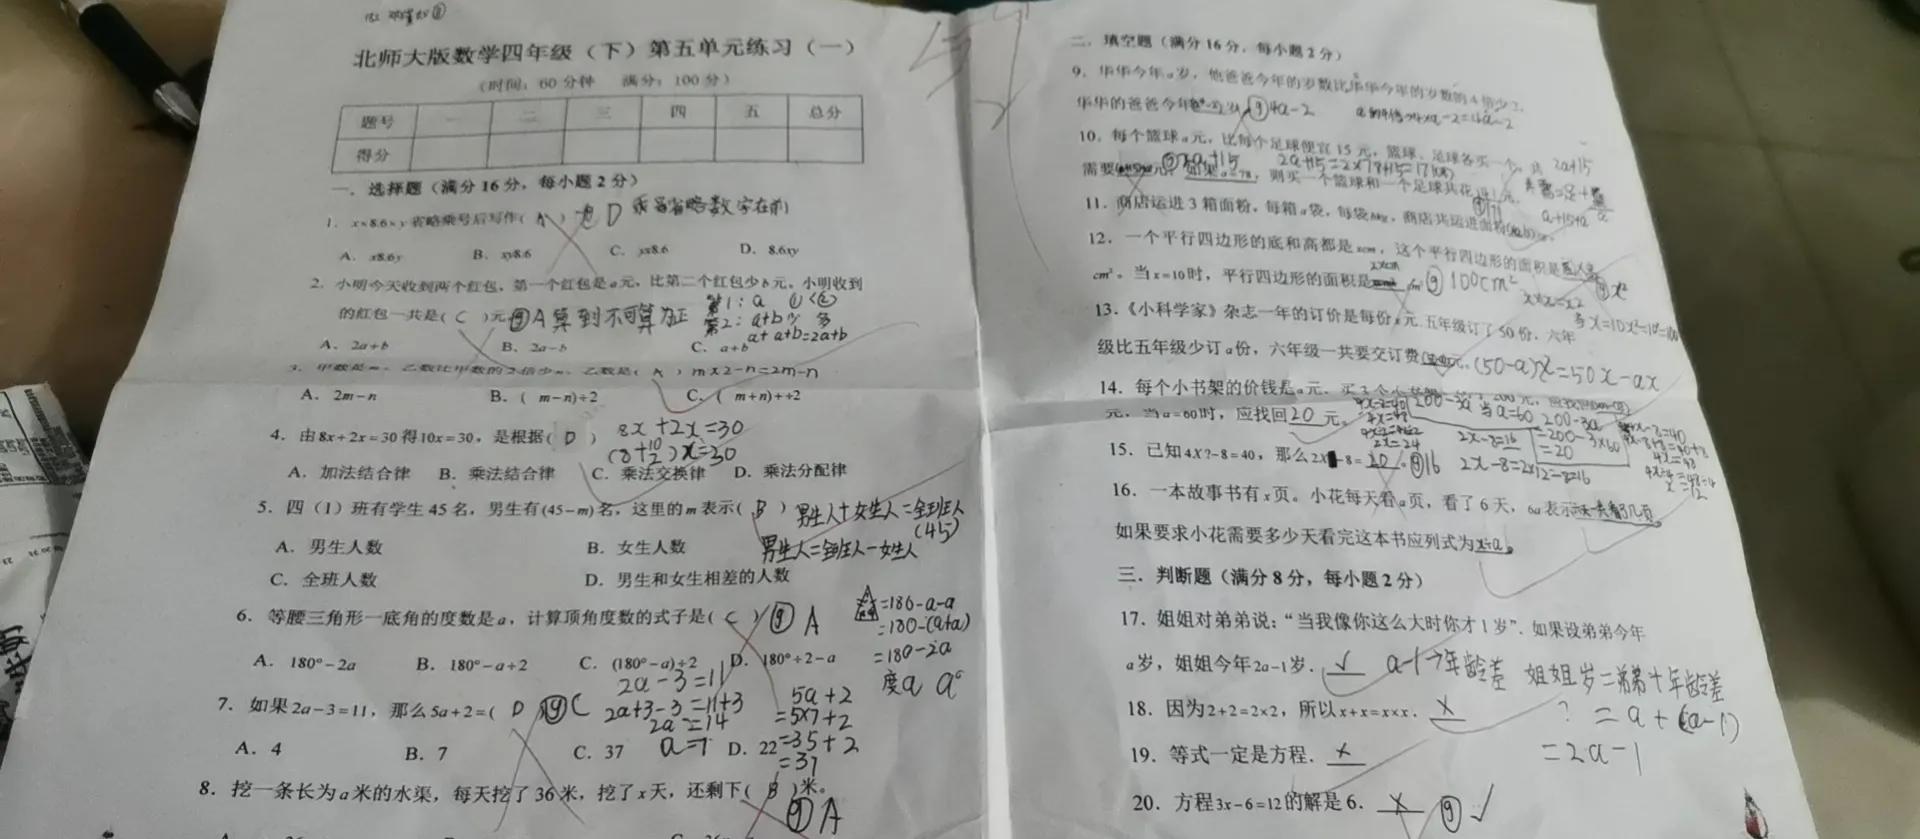 北师大版数学四年级（下）第五单元练习（一）
（时间：60分钟 满分：100分）
题号 一 二 三 四 五 总分
得分
一．选择题（满分16分，每小题2分）
1．x×8.6×y省略乘号后写作( A ) D 乘号省略数字在前
A．x8.6y B．xy8.6 C．yx8.6 D．8.6xy
2．小明今天收到两个红包，第一个红包是a元，比第二个红包少b元，小明收到
第1：a ①<②
的红包一共是( C )元 A 算到不可算为止 第2：a+b
a+a+b=2a+b
A．2a+b B．2a-b C．a+b
3．甲数是m，乙数比甲数的2倍少n，乙数是( A ) m×2-n=2m-n
A．2m-n B．( m-n)÷2 C．( m+n)÷÷2
4．由8x+2x=30得10x=30，是根据( D ) 8x+2x=30
(8+2)x=30
10
A．加法结合律 B．乘法结合律 C．乘法交换律 D．乘法分配律
5．四（1）班有学生45名，男生有(45-m)名，这里的m表示( B ) 男生人+女生人=全班人
(45)
A．男生人数 B．女生人数 男生人=全班人-女生人
C．全班人数 D．男生和女生相差的人数
6．等腰三角形一底角的度数是a，计算顶角度数的式子是( C ) A
=180-a-a
=180-(a+a)
=180-2a
度a a°
A．180°-2a B．180°-a÷2 C．(180°-a)÷2 D．180°÷2-a
2a-3=11
7．如果2a-3=11，那么5a+2=( D ) C 2a+3-3=11+3
2a=14
a=7
5a+2
=5×7+2
=35+2
=37
A．4 B．7 C．37 D．22
8．挖一条长为a米的水渠，每天挖了36米，挖了x天，还剩下( B )米。
A
二．填空题（满分16分，每小题2分）
9．华华今年a岁，他爸爸今年的岁数比华华今年的岁数的4倍少2，
华华的爸爸今年 岁 4a-2 ×a-2=4a-2
10．每个篮球a元，比每个足球便宜15元，篮球、足球各买一个，共 2a+15
需要 元，如果a=78，则买一个篮球和一个足球共花 元．
2a+15 2a+15=2×78+15=171(元)
171 a+15+a
11．商店运进3箱面粉，每箱a袋，每袋bkg，商店共运进面粉
12．一个平行四边形的底和高都是xcm，这个平行四边形的面积是
x²
cm²。当x=10时，平行四边形的面积是 100cm²
x×x=x²
当x=10 x²=10²=100
13．《小科学家》杂志一年的订价是每份x元．五年级订了50份，六年
级比五年级少订a份，六年级一共要交订费 元．(50-a)x=50x-ax
14．每个小书架的价钱是a元．买3个小书架，
200-3a
元，当a=60时，应找回20元． 当a=60 200-3a
=200-3×60
=20
4x-8=40
4x-8+8=40+8
4x=48
4x÷4=48÷4
x=12
15．已知4X?-8=40，那么2X-8=20． 16 2x-8=16
2x-8=2×12-8=16
4x=48
2x=24
16．一本故事书有x页。小花每天看a页，看了6天，6a表示六天一共看了几页
如果要求小花需要多少天看完这本书应列式为x÷a。
三．判断题（满分8分，每小题2分）
17．姐姐对弟弟说：“当我像你这么大时你才1岁”．如果设弟弟今年
a岁，姐姐今年2a-1岁．√ a-1→年龄差 姐姐岁=弟弟+年龄差
? =a+(a-1)
=2a-1
18．因为2+2=2×2，所以x+x=x×x．×
19．等式一定是方程．×
20．方程3x-6=12的解是6．× √